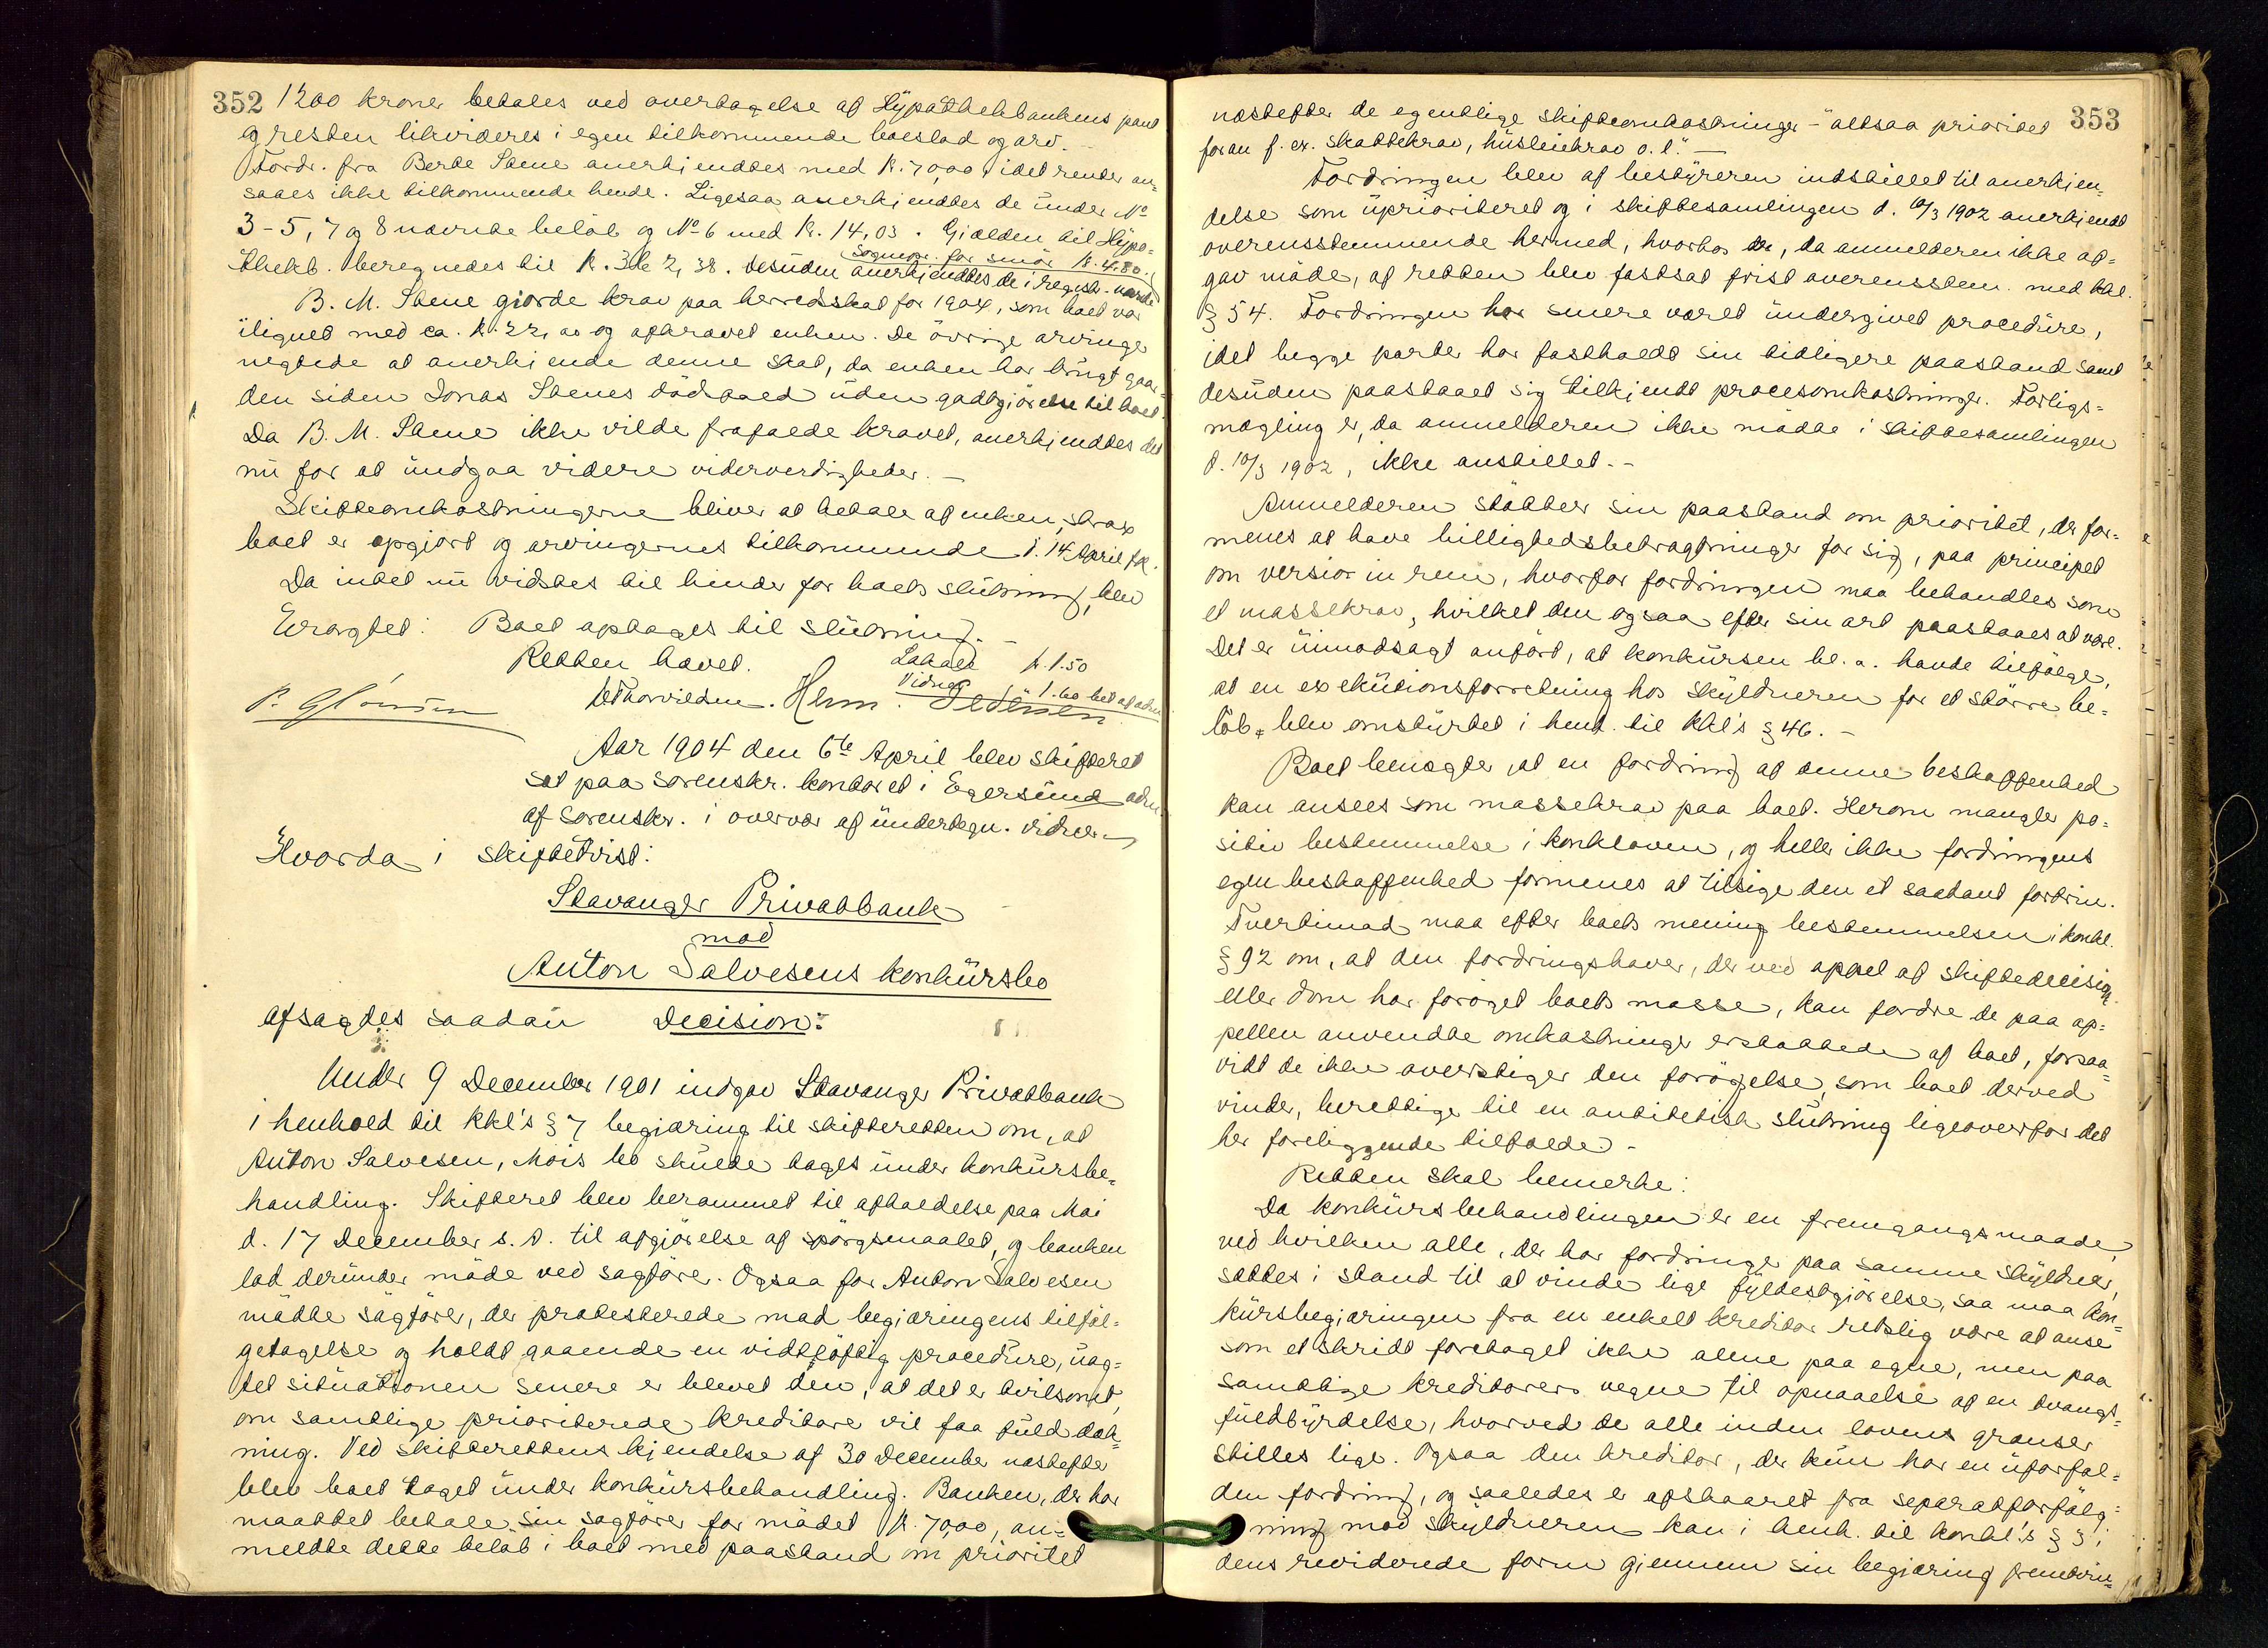 352
1200 kroner betales ved overtagelse af Hypothekbankens pant
og resten likvideres i egen tilkommende boeslod og arv. —
Fordr. fra Berte Stene anerkjendtes med K. 70,00, idet renter an-
saaes ikke tilkommende hende. Ligesaa anerkjendtes de under No
3-5, 7 og 8 nævnte beløb og No 6 med K. 14,03. Gjælden til Hypo-
thekb. beregnedes til K. 2,38. Desuden anerkjendtes de i registr. nævnte
Sognepr. for smör K. 4.80.
B. M. Stene gjorde krav paa herredsskat for 1904, som boet var
ilignet med ca. K. 22,00 og afkrævet enken. De övrige arvinger
negtede at anerkjende denne skat, da enken har brugt gaar-
den siden Jonas Stenes dödsfald uden godtgjörelse til boet.
Da B. M. Stene ikke vilde frafalde kravet, anerkjendtes det
nu for at undgaa videre viderverdigheder. —
Skifteomkostningerne bliver at betale af enken, strax
boet er opgjort og arvingernes tilkommende d. 14 April f.k.
Da intet nu vidstes til hinder for boets slutning, blev
Eragtet: Boet optages til slutning. —
Retten hævet.
Lokale K. 1.50
Vidner 1.60 bet. af adm.
Aar 1904 den 6te April blev skifteret
sat paa sorenskr. kontoret i Egersund adm.
af sorenskr. i overvær af undertegn. vidner.
Hvorda i skiftetvist:
Stavanger Privatbank
mod
Anton Salvesens konkursbo
afsagdes saadan Decision:
Under 9 December 1901 indgav Stavanger Privatbank
i henhold til kkl's § 7 begjæring til skifteretten om, at
Anton Salvesen, Mois bo skulde tages under konkursbe-
handling. Skifteret blev berammet til afholdelse paa Moi
d. 17 December s. A. til afgjörelse af spörgsmaalet, og banken
lod derunder möde ved sagförer. Ogsaa for Anton Salvesen
mödte sagförer, der protesterede mod begjæringens tilföl-
getagelse og holdt gaaende en vidtlöftig procedure, uag-
tet situationen senere er blevet den, at det er tvilsomt,
om samtlige prioriterede kreditorer vil faa fuld dæk-
ning. Ved skifterettens kjendelse af 30 December næstefter
blev boet taget under konkursbehandling. Banken, der har
maattet betale sin sagförer for mödet K. 70,00, an-
meldte dette beløb i boet med paastand om prioritet
353
næstefter de egentlige skifteomkostninger - "altsaa prioritet
foran f. ex. skattekrav, husleiekrav o. l." —
Fordringen blev af bestyreren indstillet til anerkjen-
delse som uprioriteret og i skiftesamlingen d. 10/3 1902 anerkjendt
overensstemmende hermed, hvorhos der, da anmelderen ikke af-
gav möde, af retten blev fastsat frist overensstem. med kkl.
§ 54. Fordringen har senere været undergivet procedure,
idet begge parter har fastholdt sin tidligere paastand samt
desuden paastaaet sig tilkjendt procesomkostninger. Forligs-
mægling er, da anmelderen ikke mödte i skiftesamlingen
d. 10/3 1902, ikke anstillet. -
Anmelderen stötter sin paastand om prioritet, der for-
menes at have billighedsbetragtninger for sig, paa principet
om versio in rem, hvorfor fordringen maa behandles som
et massekrav, hvilket den ogsaa efter sin art paastaaes at være.
Det er uimodsagt anfört, at konkursen bl. a. havde tilfölge,
at en exekutionsforretning hos skyldneren for et större be-
löb, blev omstyrtet i henh. til kkl's § 46. -
Boet benægter, at en fordring af denne beskaffenhed
kan ansees som massekrav paa boet. Herom mangler po-
sitiv bestemmelse i konkloven, og heller ikke fordringens
egen beskaffenhed formenes at tilsige den et saadant fortrin.
Tvertimod maa efter boets mening bestemmelsen i konkl.
§ 92 om, at den fordringshaver, der ved appel af skiftedecision
eller dom har foröget boets masse, kan fordre de paa ap-
pellen anvendte omkostninger erstattede af boet, forsaa-
vidt de ikke overstiger den forögelse, som boet derved
vinder, berettige til en antitetisk slutning ligeoverfor det
her foreliggende tilfælde. -
Retten skal bemerke:
Da konkursbehandlingen er en fremgangsmaade,
ved hvilken alle, der har fordringer paa samme skyldner,
sættes i stand til at vinde lige fyldestgjörelse, saa maa kon-
kursbegjæringen fra en enkelt kreditor retslig være at anse
som et skridt foretaget ikke alene paa egne, men paa
samtlige kreditorers vegne til opnaaelse af en tvangs-
fuldbyrdelse, hvorved de alle inden lovens grænser
stilles lige. Ogsaa den kreditor, der kun har en uforfal-
den fordring, og saaledes er afskaaret fra separatforfölg-
ning mod skyldneren kan i henh. til konkl's § 3 i
dens reviderede form gjennem sin begjæring fremtvin-